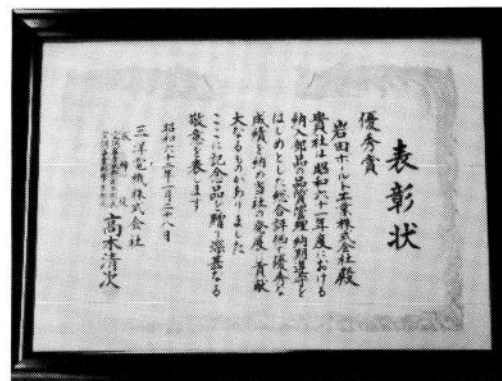 表彰状
優秀賞
岩田ボルト工業株式会社殿
貴社は昭和六十一年度における
納入部品の品質管理納期遵守を
はじめとした総合評価で優秀な
成績を納め当社の発展に貢献
大なるものがありました
ここに記念品を贈り深甚なる
敬意を表します
昭和六十二年一月二十八日
三洋電機株式会社
高木清次